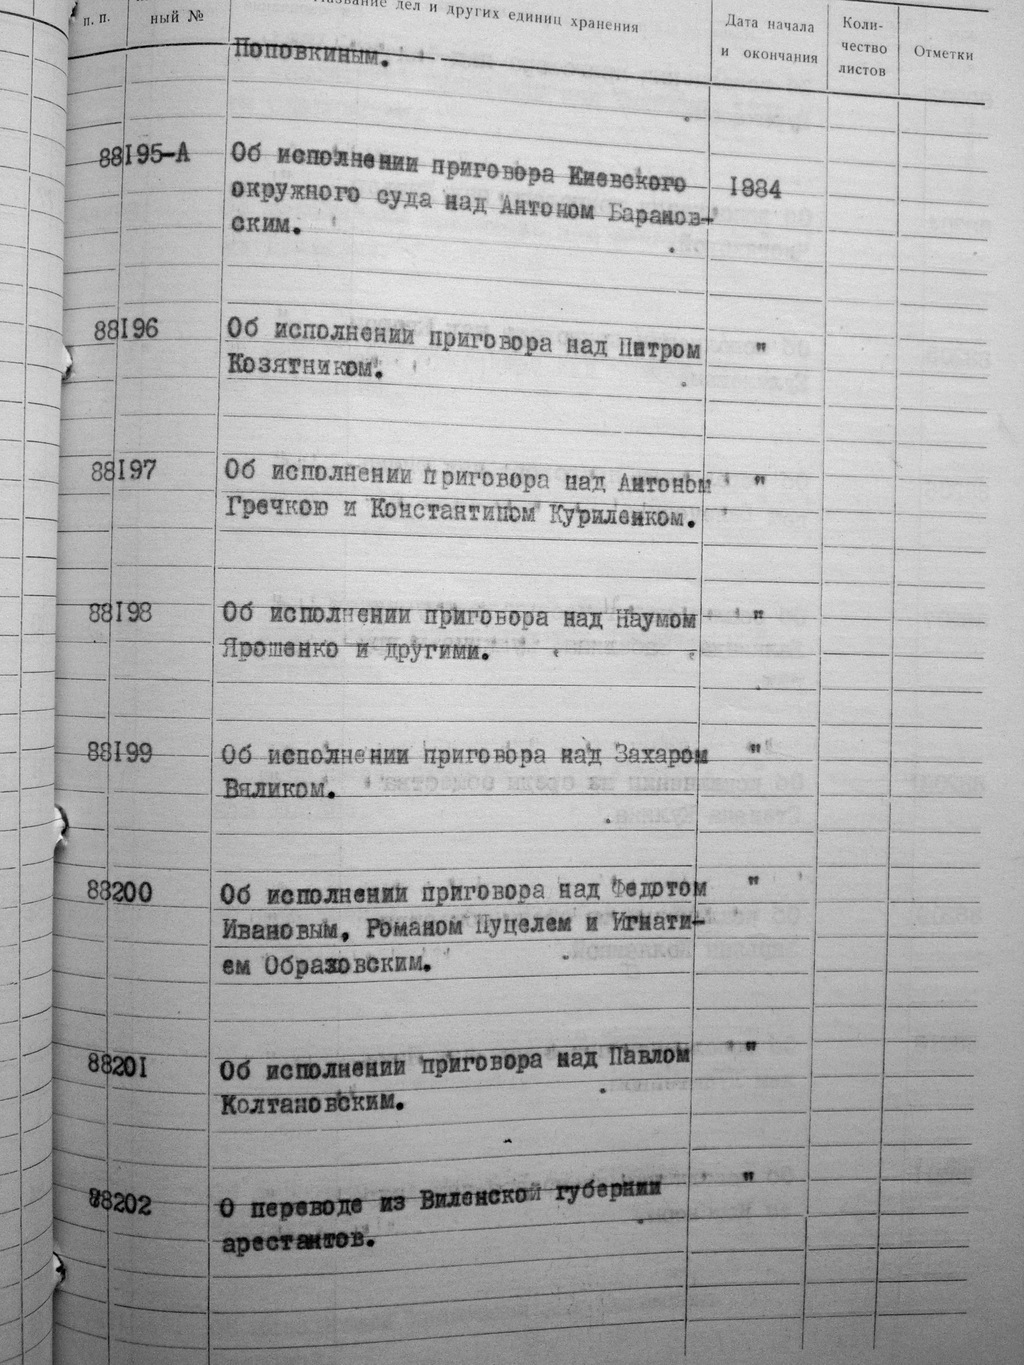 п. п.
ный №
Название дел и других единиц хранения
Дата начала
и окончания
Коли-
чество
листов
Отметки
Поповкиным.
88195-А Об исполнении приговора Киевского 1884
окружного суда над Антоном Баранов-
ским.
88196 Об исполнении приговора над Питром "
Козятником.
88197 Об исполнении приговора над Антоном "
Гречкою и Константином Куриленком.
88198 Об исполнении приговора над Наумом "
Ярошенко и другими.
88199 Об исполнении приговора над Захаром "
Вяликом.
88200 Об исполнении приговора над Федотом "
Ивановым, Романом Пуцелем и Игнати-
ем Обраховским.
88201 Об исполнении приговора над Павлом "
Колтановским.
88202 О переводе из Виленской губернии "
арестантов.